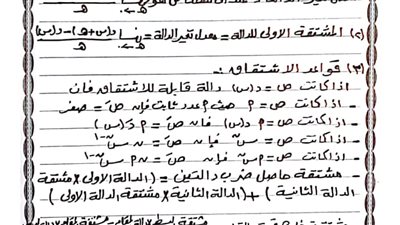 (٢) المشتقة الاولى للدالة = معدل تغير الدالة = نهـا د(س+هـ) - د(س) / هـ
هـ←٠
(٣) قواعد الاشتقاق :-
اذا كانت ص = د(س) دالة قابلة للاشتقاق فان
اذا كانت ص = م حيث م عدد ثابت فإن صَ = صفر
اذا كانت ص = م د(س) فان صَ = م دَ(س)
اذا كانت ص = سⁿ فإن صَ = ن سⁿ⁻¹
اذا كانت ص = م سⁿ فإن صَ = م ن سⁿ⁻¹
- مشتقة حاصل ضرب دالتين = (الدالة الاولى × مشتقة
الدالة الثانية) + (الدالة الثانية × مشتقة الدالة الاولى)